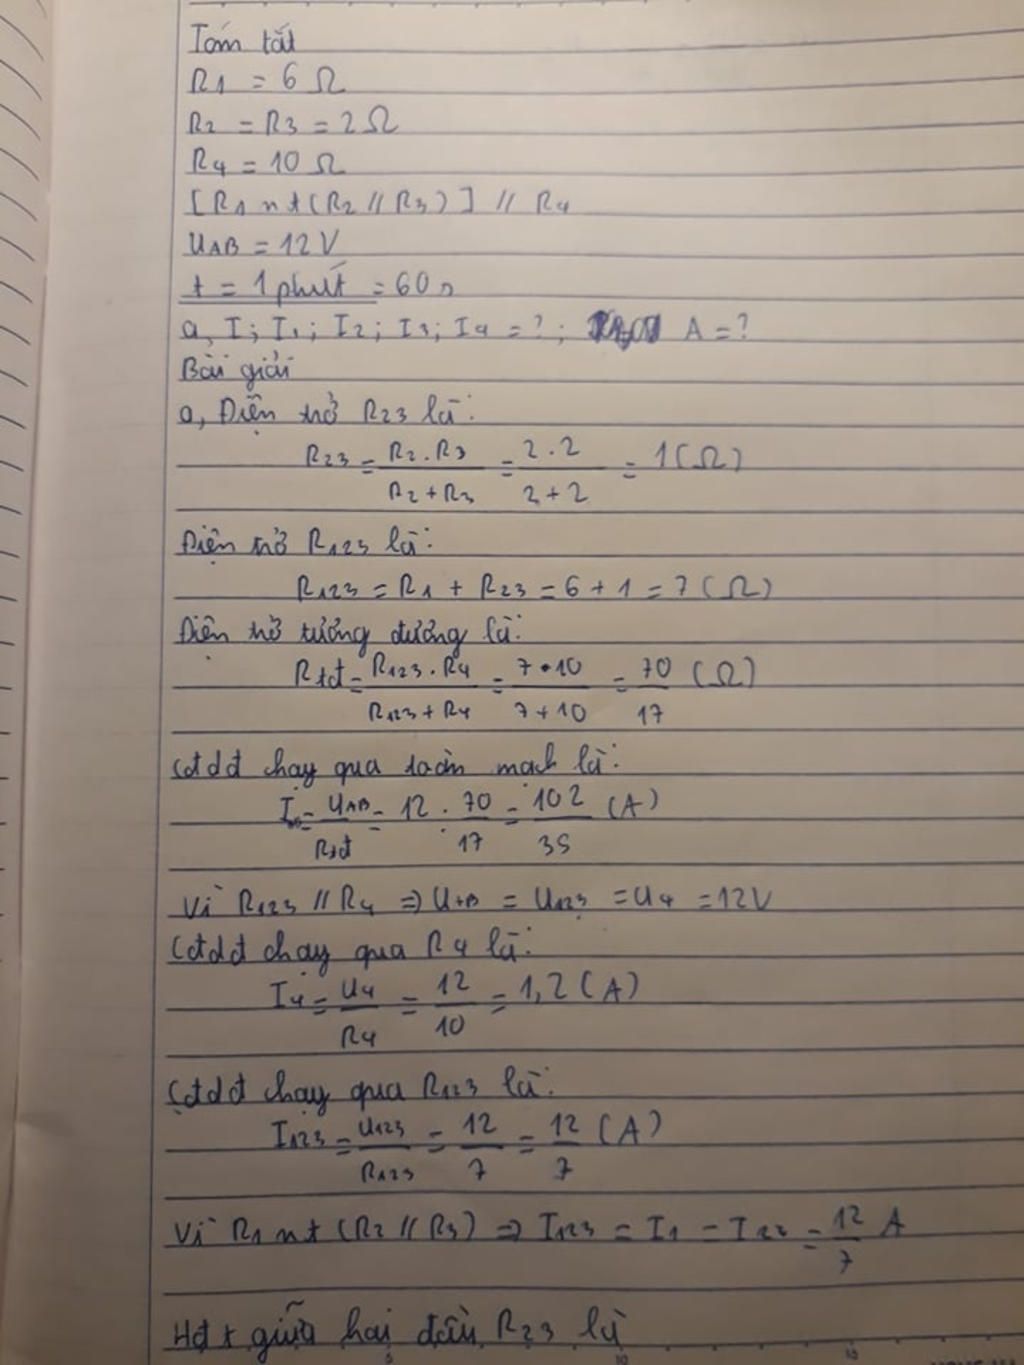 Tóm tắt
R1 = 6 Ω
R2 = R3 = 2 Ω
R4 = 10 Ω
[R1 nt (R2 // R3)] // R4
UAB = 12V
t = 1 phút = 60s
a, I; I1; I2; I3; I4 = ?; A = ?
Bài giải
a, Điện trở R23 là:
R23 = R2.R3 / R2+R3 = 2.2 / 2+2 = 1(Ω)
Điện trở R123 là:
R123 = R1 + R23 = 6 + 1 = 7 (Ω)
Điện trở tương đương là:
Rtđ = R123.R4 / R123+R4 = 7.10 / 7+10 = 70/17 (Ω)
Cđdđ chạy qua toàn mạch là:
I = UAB / Rtđ = 12 : 70/17 = 102/35 (A)
Vì R123 // R4 => UAB = U123 = U4 = 12V
Cđdđ chạy qua R4 là:
I4 = U4/R4 = 12/10 = 1,2 (A)
Cđdđ chạy qua R123 là:
I123 = U123/R123 = 12/7 = 12/7 (A)
Vì R1 nt (R2 // R3) => I123 = I1 = I23 = 12/7 A
Hđt giữa hai đầu R23 là